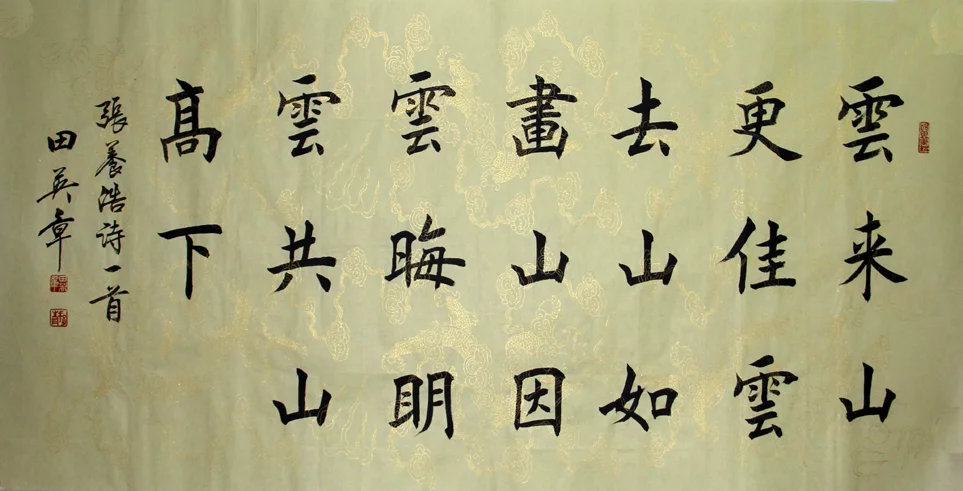 雲来山
更佳雲
去山如
畫山因
雲晦明
雲共山
髙下
張養浩诗一首
田英章